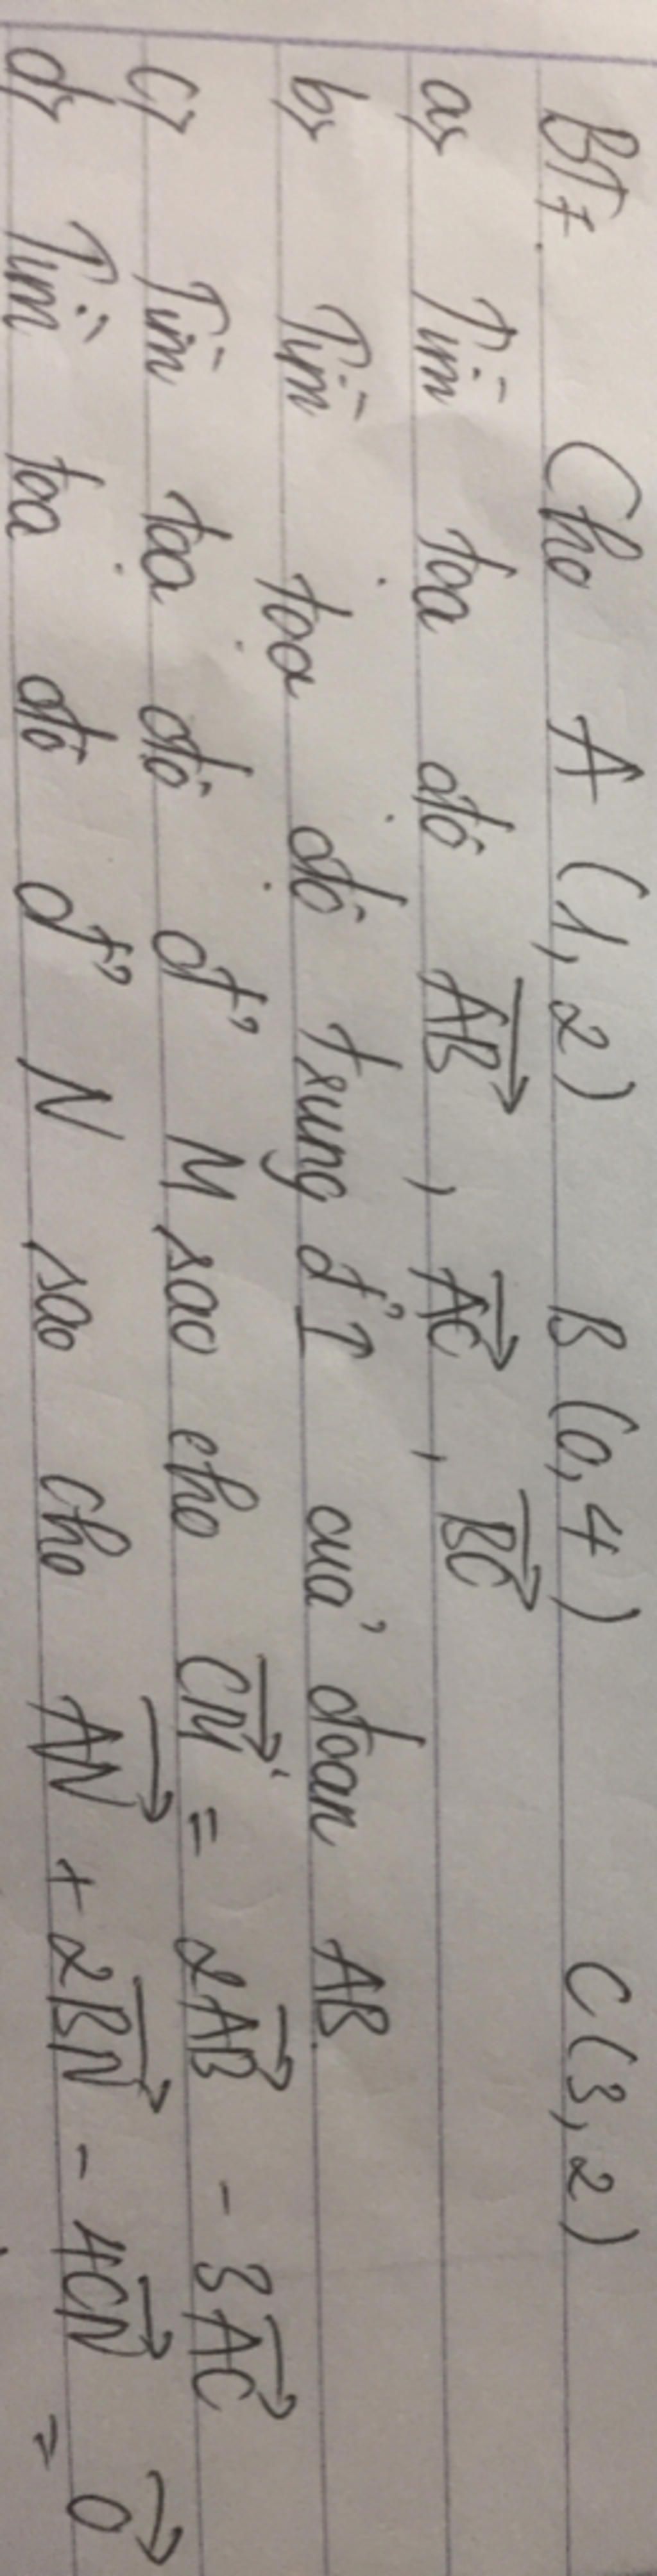 BT7. Cho A (1,2) B (0,4) C (3,2)
a, Tìm toạ độ AB, AC, BC
b, Tìm toạ độ trung đ' I của đoạn AB
c, Tìm toạ độ đ' M sao cho CM = 2AB - 3AC
d, Tìm toạ độ đ' N sao cho AN + 2BN - 4CN = 0